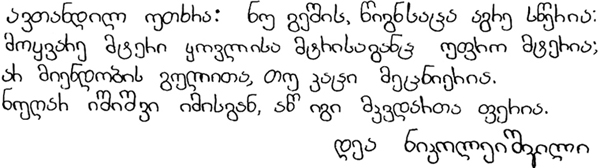 ავთანდილ უთხრა: ნუ გეშის, წიგნსაცა აგრე სწერია:
მოყვარე მტერი ყოვლისა მტრისაგანც უფრო მტერია;
არ მიენდობის გულითა, თუ კაცი მეცნიერია.
ნუღარ იშიშვი იმისგან, აწ იგი მკვდართა ფერია.
დეა ნიკოლეიშვილი